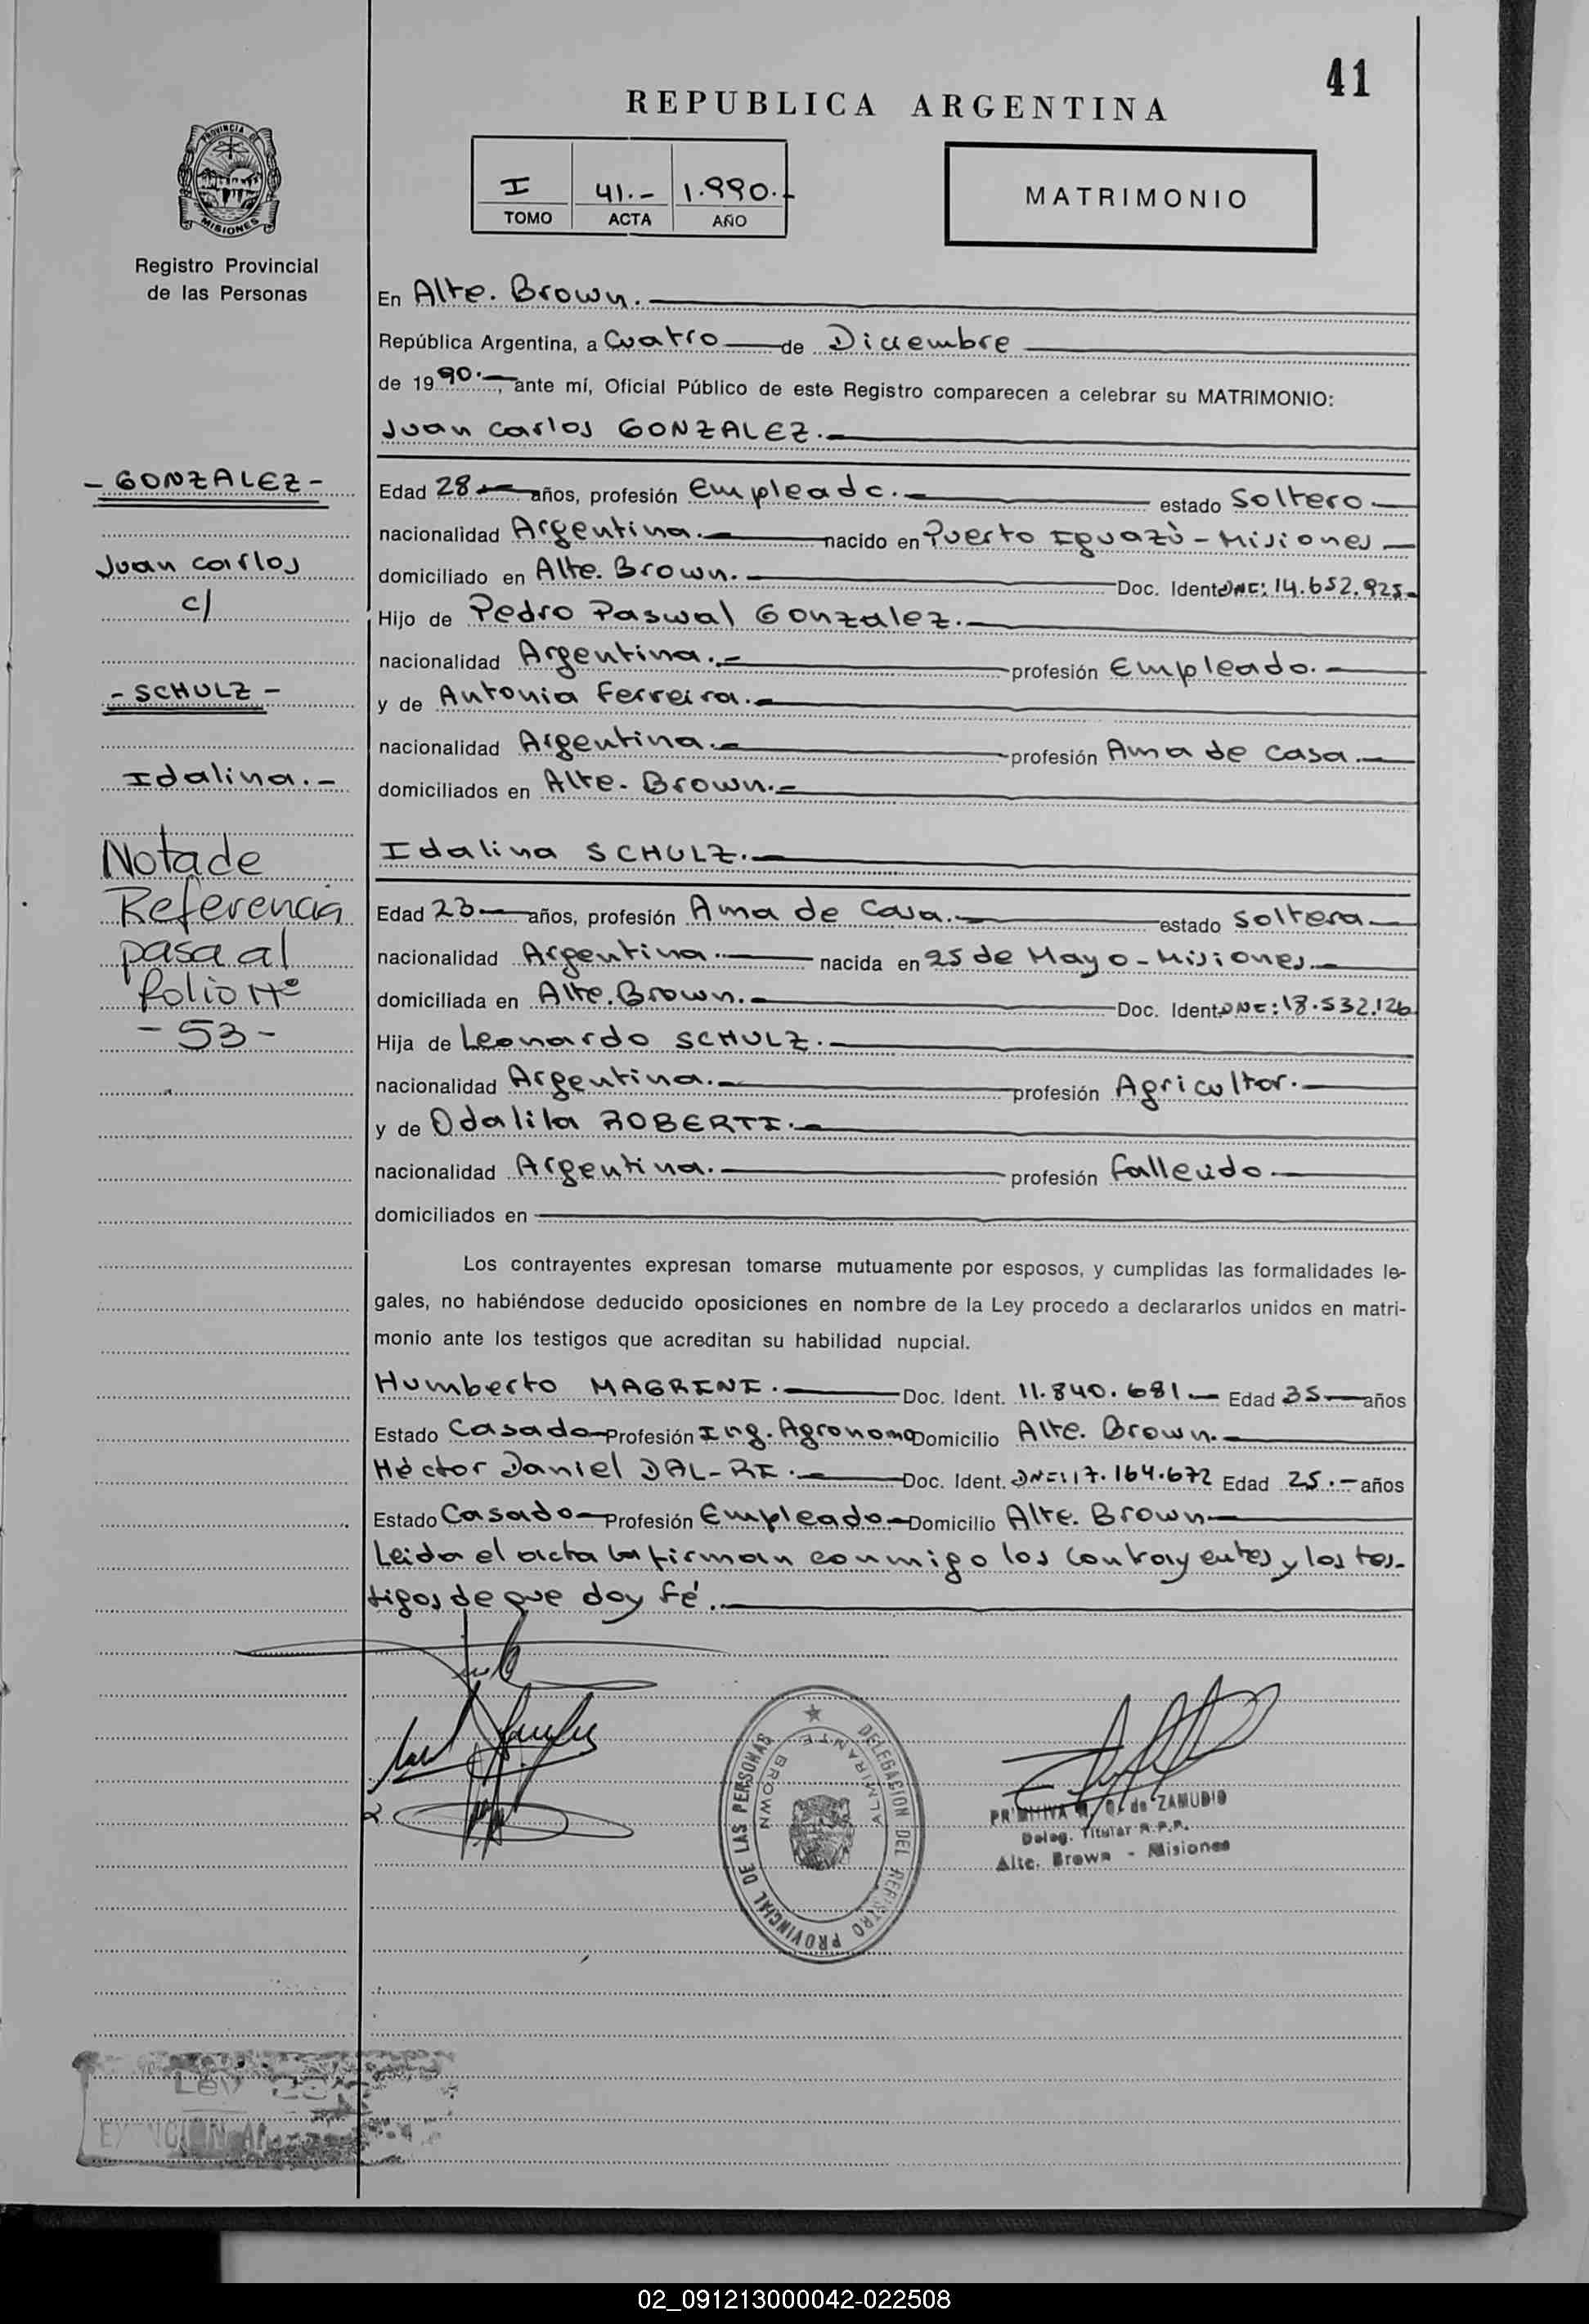 41
REPUBLICA ARGENTINA
PROVINCIA DE
MISIONES
I 41.- 1.990.-
TOMO ACTA AÑO
MATRIMONIO
Registro Provincial
de las Personas
En Alte. Brown.
República Argentina, a Cuatro de Diciembre
de 1990.-, ante mí, Oficial Público de este Registro comparecen a celebrar su MATRIMONIO:
Juan Carlos GONZALEZ.-
- GONZALEZ -
Juan Carlos
c/
- SCHULZ -
Idalina.-
Nota de
Referencia
pasa al
folio Nº
- 53 -
Edad 28 años, profesión Empleado.- estado Soltero
nacionalidad Argentina.- nacido en Puerto Iguazù - Misiones
domiciliado en Alte. Brown.- Doc. Ident DNI: 14.652.925-
Hijo de Pedro Pascual Gonzalez.-
nacionalidad Argentina.- profesión Empleado.-
y de Antonia Ferreira.-
nacionalidad Argentina.- profesión Ama de Casa.-
domiciliados en Alte. Brown.-
Idalina SCHULZ.-
Edad 23 años, profesión Ama de Casa.- estado Soltera
nacionalidad Argentina.- nacida en 25 de Mayo - Misiones.-
domiciliada en Alte. Brown.- Doc. Ident DNI: 18.532.126
Hija de Leonardo SCHULZ.-
nacionalidad Argentina.- profesión Agricultor.-
y de Odalila ROBERTI.-
nacionalidad Argentina.- profesión fallecido
domiciliados en
Los contrayentes expresan tomarse mutuamente por esposos, y cumplidas las formalidades le-
gales, no habiéndose deducido oposiciones en nombre de la Ley procedo a declararlos unidos en matri-
monio ante los testigos que acreditan su habilidad nupcial.
Humberto MAGRINI.- Doc. Ident. 11.840.681.- Edad 35 años
Estado Casado Profesión Ing. Agronomo Domicilio Alte. Brown.-
Héctor Daniel DAL-RI.- Doc. Ident. DNI: 17.164.672 Edad 25.- años
Estado Casado Profesión Empleado.- Domicilio Alte. Brown
Leida el acta la firman conmigo los Contrayentes y los tes-
tigos de que doy fé.
DELEGACION DEL REGISTRO PROVINCIAL DE LAS PERSONAS
ALMIRANTE BROWN
de ZAMUDIO
Deleg. Titular R.P.P.
Alte. Brown - Misiones
Ley
02_091213000042-022508